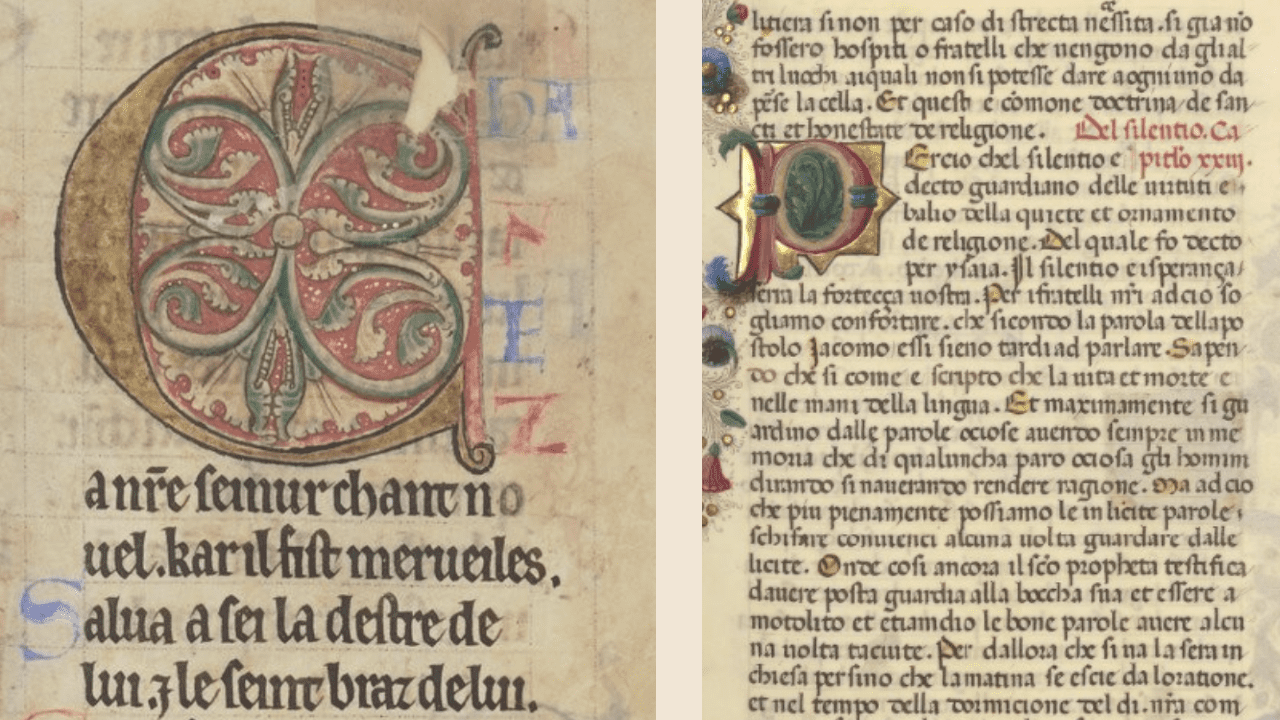 C hA
N
Z
a nr̃e ſeinur chant no
uel. kar il fiſt merueiles.
Salua a ſei la deſtre de
lui. ⁊ le ſeint braz de lui.
litiera ſi non per caſo di ſtrecta neſſita. ſi gia nõ
foſſero hoſpiti o fratelli che uengono da glial
tri luochi ai quali non ſi poteſſe dare a ogni uno da
pẽſe la cella. Et queſti e cõmone doctrina de ſan
cti et honeſtate de religione. Del ſilentio. Ca
Ercio chel ſilentio e pitĺo xxiij.
decto guardiano delle uirtuti e
balio della quiete et ornamento
de religione. Del quale fo decto
per yſaia. Il ſilentio e iſperança
ſerra la forteçça noſtra. Per i fratelli nr̃i ad cio ſo
gliamo confortare. che ſicondo la parola dell apo
ſtolo Jacomo eſſi ſieno tardi ad parlare. Sapen
do che ſi come e ſcripto che la uita et morte e
nelle mani della lingua. Et maximamente ſi gu
ardino dalle parole ocioſe auendo ſempre in me
moria che di qualuncha paro ocioſa gli homini
durando ſi naueranno rendere ragione. Ma ad cio
che piu pienamente poſſiamo le inlicite parole
ſchifare conuienci alcuna uolta guardare dalle
licite. Onde coſi ancora il ſc̃o propheta teſtifica
dauere poſta guardia alla boccha ſua et eſſere a
motolito et etiamdio le bone parole auere alcu
na uolta tacuite. Per dallora che ſi na la ſera in
chieſa per ſino che la matina ſe eſcie da loratione.
et nel tempo della dormicione del di. nr̃a com